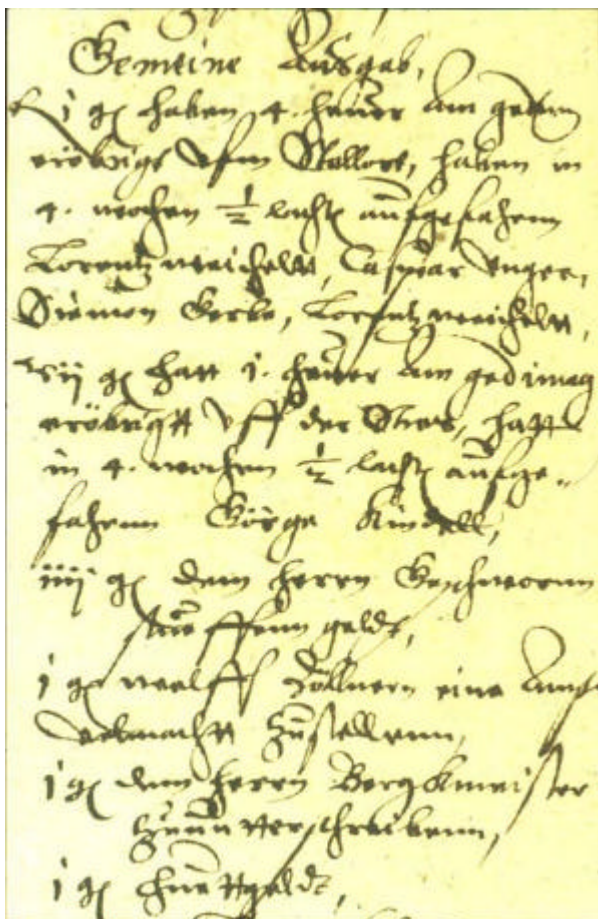 Gemeine Ausgab,
j gl haben 4. heuer Am gedin
eröbrigt Vfm Stollort, haben in
4. wochen ½ lachter aufgefahrenn
Lorentz weicheltt, Caspar Unger,
Siemon Gerbe, Lorentz weicheltt,
vij gl hatt j. heuer Am gedinng
eröbrigtt Vff der Stros, hatt
in 4. wochen ½ lachter aufge„
fahrenn Görge Kindell,
iiij gl dem herrn Geschwornn
geldt,
j gl Wolff Zöllnern eine
zustellenn,
j gl dem herrn Bergkmeister
Zuuntterschreibenn,
j gl